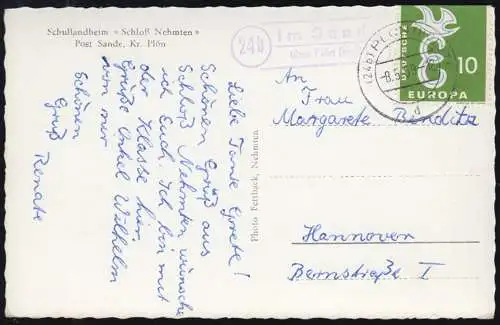 Schullandheim »Schloß Nehmten«
Post Sande, Kr. Plön
Liebe Tante Grete!
Schönen Gruß aus
Schloß Nehmten wünsche
ich Euch. Ich bin mit
der Klasse hier.
Grüße Onkel Wilhelm
von mir
Schönen
Gruß
Renate
Photo Fettback, Nehmten
24b
Im Sand
über Plön
(24b) PLÖN
DEUTSCHE
10
EUROPA
An
Frau
Margarete Benditz
Hannover
Bernstraße I